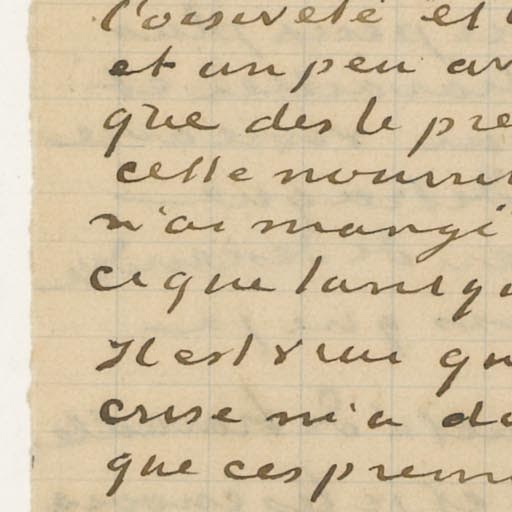 l'oisiveté et
et un peu av
que dès le pre
cette nourri
n'ai mangé
ce que tant q
Il est vrai qu
crise m'a do
que ces premi